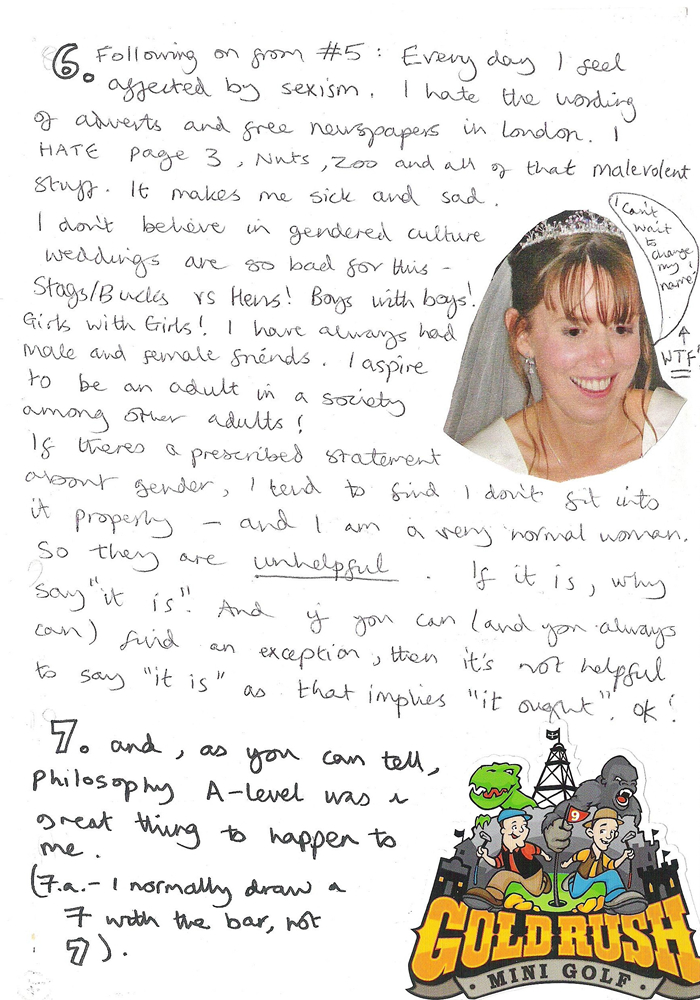 6. Following on from #5: Every day I feel
affected by sexism. I hate the wording
of adverts and free newspapers in London. I
HATE page 3, Nuts, Zoo and all of that malevolent
stuff. It makes me sick and sad.
I don't believe in gendered culture
weddings are so bad for this -
Stags/Bucks vs Hens! Boys with boys!
Girls with Girls! I have always had
male and female friends. I aspire
to be an adult in a society
among other adults!
If theres a prescribed statement
about gender, I tend to find I don't fit into
it properly - and I am a very normal woman.
So they are unhelpful. If it is, why
say "it is". And if you can (and you always
can) find an exception, then it's not helpful
to say "it is" as that implies "it ought". ok!
I can't
wait
to
change
my
name!
WTF!
7. and, as you can tell,
Philosophy A-level was a
great thing to happen to
me.
(7.a. - I normally draw a
7 with the bar, not
7).
9
GOLDRUSH
· MINI GOLF ·